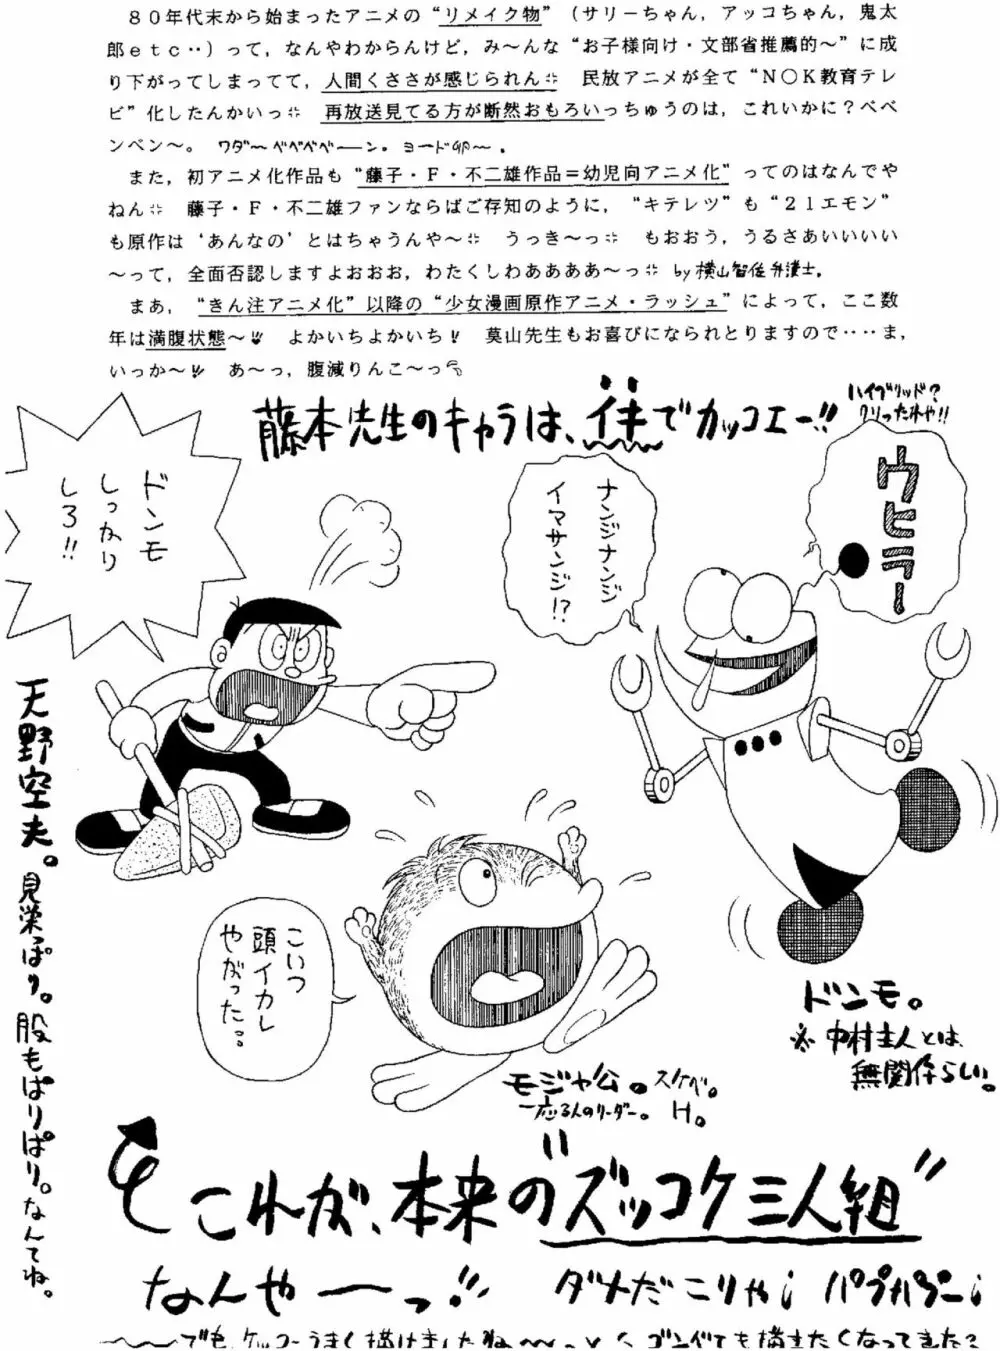 80年代末から始まったアニメの“リメイク物”(サリーちゃん,アッコちゃん,鬼太
郎etc‥)って,なんやわからんけど,み〜んな“お子様向け・文部省推薦的〜”に成
り下がってしまってて,人間くささが感じられん 民放アニメが全て“N○K教育テレ
ビ”化したんかいっ 再放送見てる方が断然おもろいっちゅうのは,これいかに?ベベ
ンベン〜。 ワダ〜ベベベベーン。ヨード卵〜。
また,初アニメ化作品も“藤子・F・不二雄作品=幼児向アニメ化”ってのはなんでや
ねん 藤子・F・不二雄ファンならばご存知のように,“キテレツ”も“21エモン”
も原作は‘あんなの’とはちゃうんや〜 うっき〜っ もおおう,うるさあいいいい
〜って,全面否認しますよおおお,わたくしわああああ〜っ by 横山智佐弁護士。
まあ,“きん注アニメ化”以降の“少女漫画原作アニメ・ラッシュ”によって,ここ数
年は満腹状態〜!! よかいちよかいち! 莫山先生もお喜びになられとりますので‥‥ま,
いっか〜!! あ〜っ,腹減りんこ〜っ
藤本先生のキャラは、イキでカッコエー!!
ハイブリッド?
クリったれや!!
ウヒラー
ナンジナンジ
イマサンジ!?
ドンモ
しっかり
しろ!!
天野空夫。見栄ぱり。股もぱりぱり。なんてね。
こいつ
頭イカレ
やがった‥
ドンモ。
※中村主人とは、
無関係らしい。
モジャ公。スケベ。
一応3人のリーダー。 H。
これが、本来の“ズッコケ三人組”
なんやーっ!! ダメだこりゃ! パプパプー!
〜でも、ケッコーうまく描けましたね〜っ
ゴンべても描きたくなってきた?